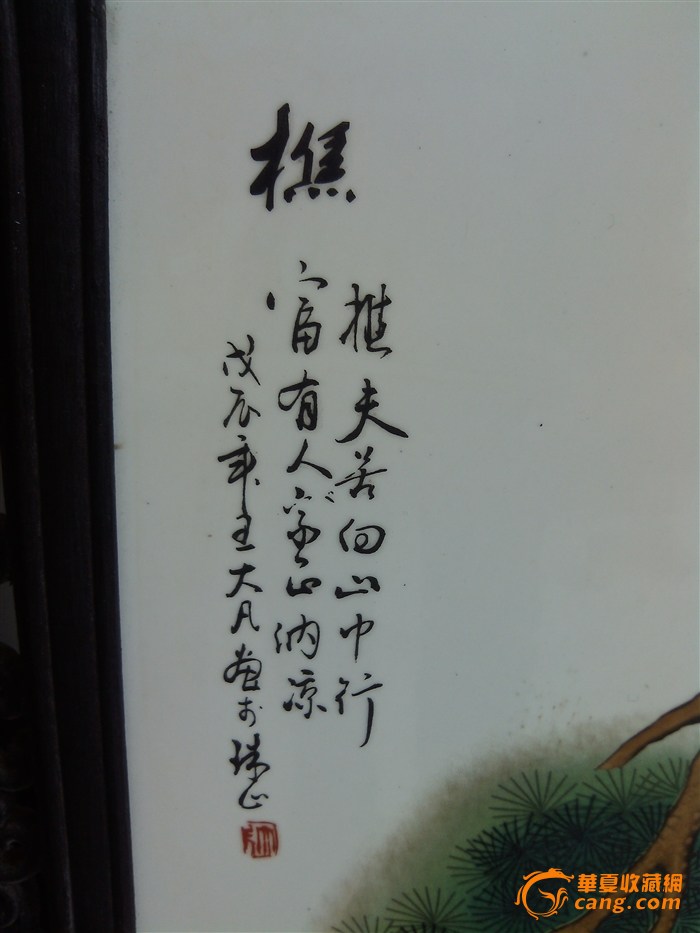 樵
樵夫苦向山中行
富有人家正纳凉
戊辰年王大凡画于珠山
華夏收藏網
cang.com